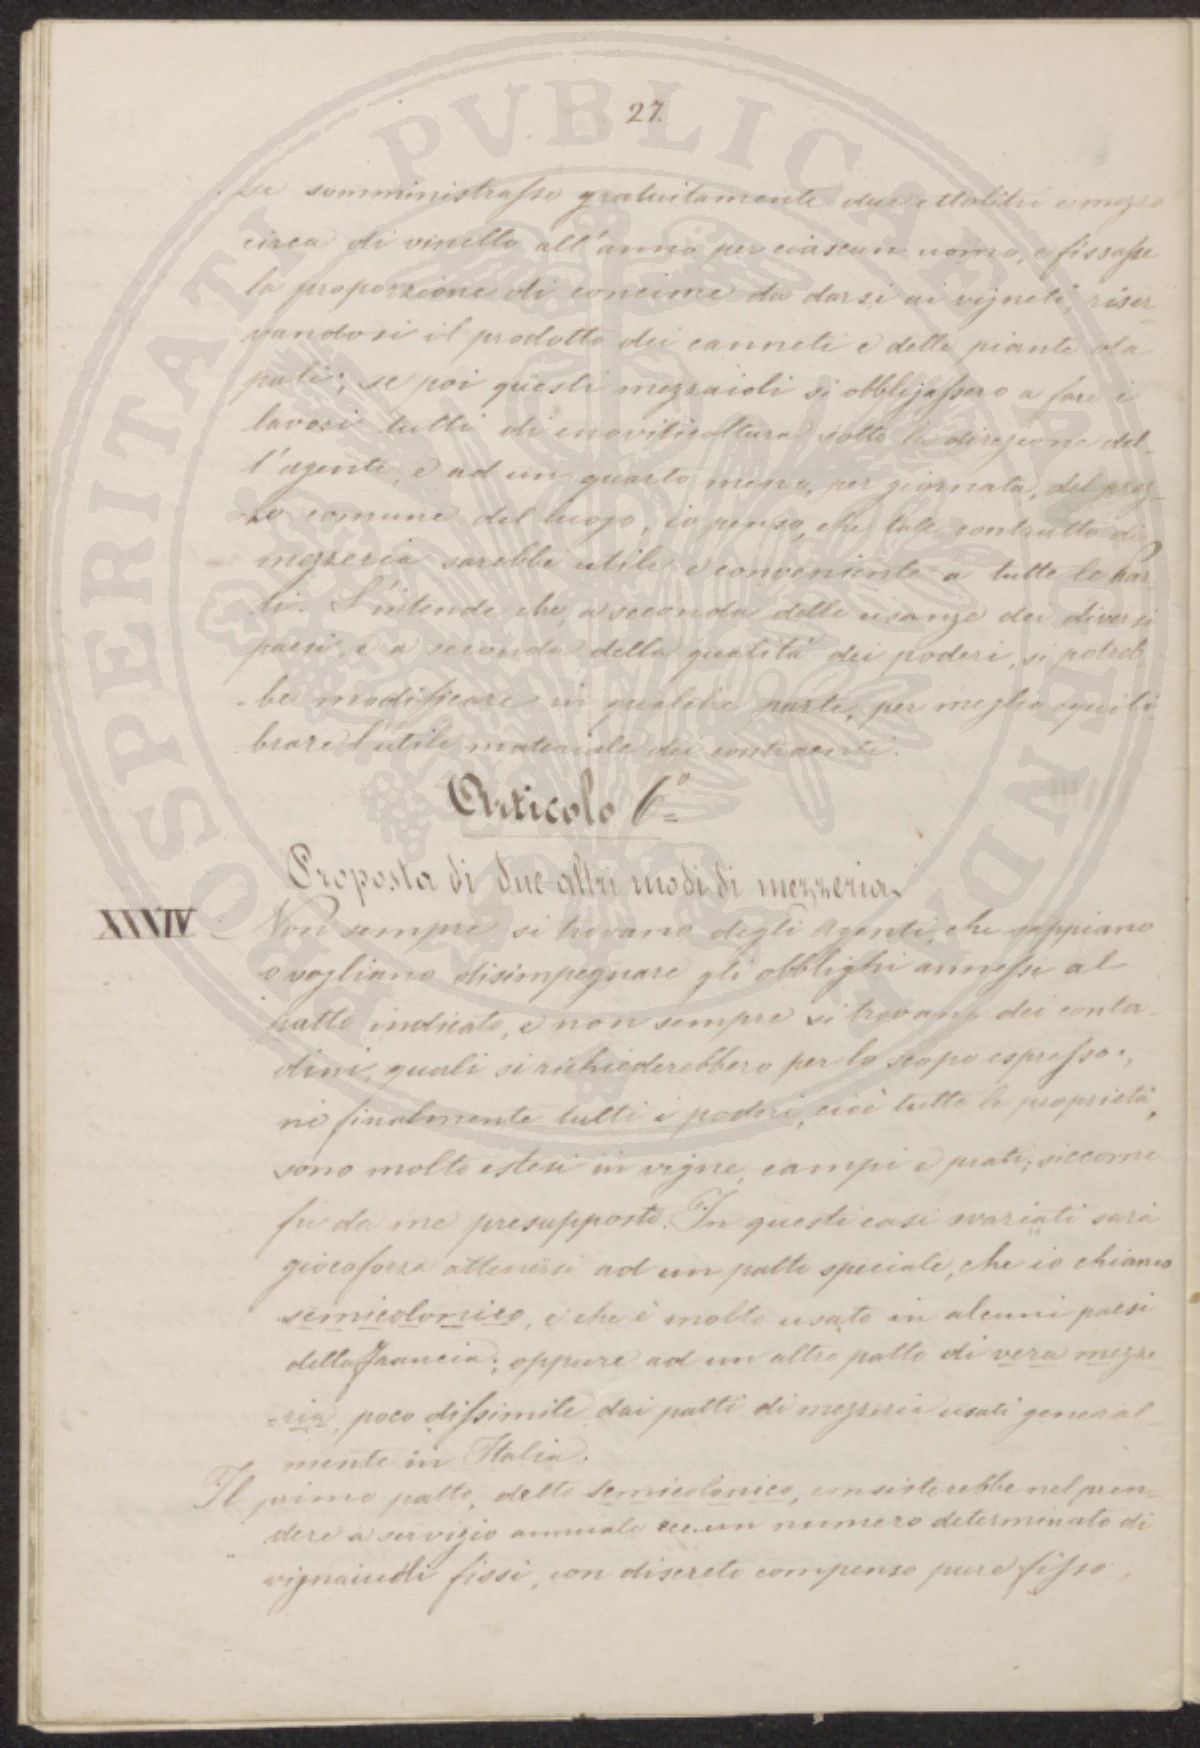 27.
se somministrasse gratuitamente due ettolitri e mezzo
circa di vinello all'anno per ciascun uomo, e fissasse
la proporzione di concime da darsi ai vigneti, riser-
vandosi il prodotto dei canneti e delle piante da
pali; se poi questi mezzaioli si obbligassero a fare i
lavori tutti di enoviticoltura sotto la direzione del-
l'agente, e ad un quarto meno, per giornata, del prez-
zo comune del luogo, io penso, che tale contratto di
mezzeria sarebbe utile e conveniente a tutte le par-
ti. S'intende che, a seconda delle usanze dei diversi
paesi, e a seconda della qualità dei poderi, si potreb-
be modificare in qualche parte, per meglio equili-
brare l'utile materiale dei contraenti.
Articolo 6°
Proposta di due altri modi di mezzeria.
XXXIV Non sempre si trovano degli Agenti, che sappiano
o vogliano disimpegnare gli obblighi annessi al
patto indicato, e non sempre si trovano dei conta-
dini, quali si richiederebbero per lo scopo espresso;
nè finalmente tutti i poderi, cioè tutte le proprietà,
sono molto estesi in vigne, campi e prati; siccome
fu da me presupposto. In questi casi svariati sarà
giocoforza attenersi ad un patto speciale, che io chiamo
semicolonico, e che è molto usato in alcuni paesi
della Francia; oppure ad un altro patto di vera mezze-
ria, poco dissimile dai patti di mezzeria usati general-
mente in Italia.
Il primo patto, detto semicolonico, consisterebbe nel pren-
dere a servigio annuale ecc. un numero determinato di
vignaiuoli fissi, con discreto compenso pure fisso,
PROSPERITATI PVBLICAE AVGENDAE